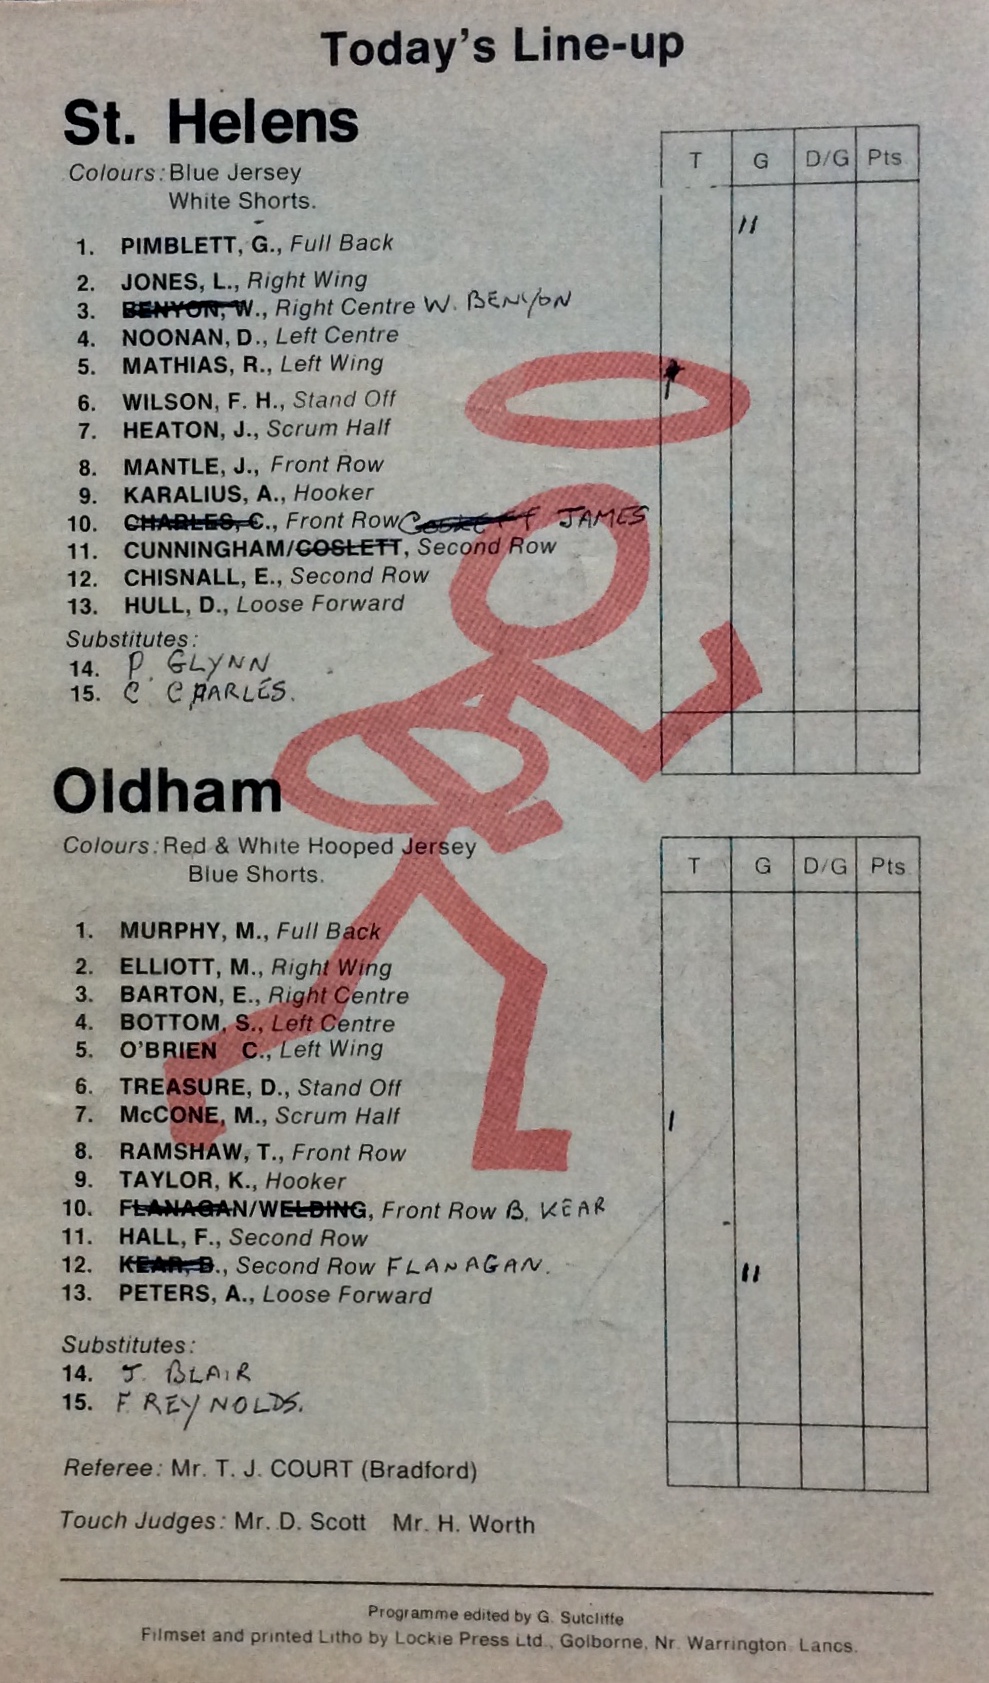 Today's Line-up
St. Helens
Colours: Blue Jersey
White Shorts.
T G D/G Pts
1. PIMBLETT, G., Full Back 11
2. JONES, L., Right Wing
3. BENYON, W., Right Centre W. BENYON
4. NOONAN, D., Left Centre
5. MATHIAS, R., Left Wing
6. WILSON, F. H., Stand Off
7. HEATON, J., Scrum Half
8. MANTLE, J., Front Row
9. KARALIUS, A., Hooker
10. CHARLES, C., Front Row JAMES
11. CUNNINGHAM/COSLETT, Second Row
12. CHISNALL, E., Second Row
13. HULL, D., Loose Forward
Substitutes:
14. P. GLYNN
15. C CHARLES.
Oldham
Colours: Red & White Hooped Jersey
Blue Shorts.
T G D/G Pts
1. MURPHY, M., Full Back
2. ELLIOTT, M., Right Wing
3. BARTON, E., Right Centre
4. BOTTOM, S., Left Centre
5. O'BRIEN C., Left Wing
6. TREASURE, D., Stand Off
7. McCONE, M., Scrum Half 1
8. RAMSHAW, T., Front Row
9. TAYLOR, K., Hooker
10. FLANAGAN/WELDING, Front Row B. KEAR
11. HALL, F., Second Row
12. KEAR, B., Second Row FLANAGAN. 11
13. PETERS, A., Loose Forward
Substitutes:
14. J. BLAIR
15. F. REYNOLDS.
Referee: Mr. T. J. COURT (Bradford)
Touch Judges: Mr. D. Scott Mr. H. Worth
Programme edited by G. Sutcliffe
Filmset and printed Litho by Lockie Press Ltd., Golborne, Nr. Warrington, Lancs.